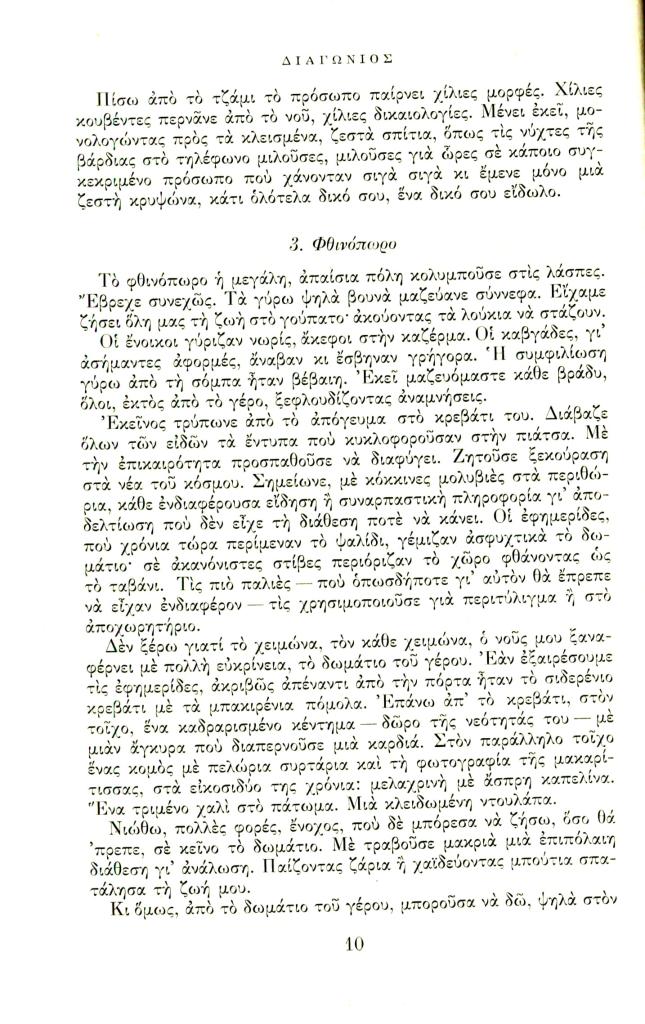 ΔΙΑΓΩΝΙΟΣ
Πίσω ἀπὸ τὸ τζάμι τὸ πρόσωπο παίρνει χίλιες μορφές. Χίλιες
κουβέντες περνᾶνε ἀπὸ τὸ νοῦ, χίλιες δικαιολογίες. Μένει ἐκεῖ, μο-
νολογώντας πρὸς τὰ κλεισμένα, ζεστὰ σπίτια, ὅπως τὶς νύχτες τῆς
βάρδιας στὸ τηλέφωνο μιλοῦσες, μιλοῦσες γιὰ ὧρες σὲ κάποιο συγ-
κεκριμένο πρόσωπο ποὺ χάνονταν σιγὰ σιγὰ κι ἔμενε μόνο μιὰ
ζεστὴ κρυψώνα, κάτι ὁλότελα δικό σου, ἕνα δικό σου εἴδωλο.
3. Φθινόπωρο
Τὸ φθινόπωρο ἡ μεγάλη, ἀπαίσια πόλη κολυμποῦσε στὶς λάσπες.
Ἔβρεχε συνεχῶς. Τὰ γύρω ψηλὰ βουνὰ μαζεύανε σύννεφα. Εἴχαμε
ζήσει ὅλη μας τὴ ζωὴ στὸ γούπατο· ἀκούοντας τὰ λούκια νὰ στάζουν.
Οἱ ἔνοικοι γύριζαν νωρίς, ἄκεφοι στὴν καζέρμα. Οἱ καβγάδες, γι’
ἀσήμαντες ἀφορμές, ἄναβαν κι ἔσβηναν γρήγορα. Ἡ συμφιλίωση
γύρω ἀπὸ τὴ σόμπα ἦταν βέβαιη. Ἐκεῖ μαζευόμαστε κάθε βράδυ,
ὅλοι, ἐκτὸς ἀπὸ τὸ γέρο, ξεφλουδίζοντας ἀναμνήσεις.
Ἐκεῖνος τρύπωνε ἀπὸ τὸ ἀπόγευμα στὸ κρεβάτι του. Διάβαζε
ὅλων τῶν εἰδῶν τὰ ἔντυπα ποὺ κυκλοφοροῦσαν στὴν πιάτσα. Μὲ
τὴν ἐπικαιρότητα προσπαθοῦσε νὰ διαφύγει. Ζητοῦσε ξεκούραση
στὰ νέα τοῦ κόσμου. Σημείωνε, μὲ κόκκινες μολυβιὲς στὰ περιθώ-
ρια, κάθε ἐνδιαφέρουσα εἴδηση ἢ συναρπαστικὴ πληροφορία γι’ ἀπο-
δελτίωση ποὺ δὲν εἶχε τὴ διάθεση ποτὲ νὰ κάνει. Οἱ ἐφημερίδες,
ποὺ χρόνια τώρα περίμεναν τὸ ψαλίδι, γέμιζαν ἀσφυχτικὰ τὸ δω-
μάτιο· σὲ ἀκανόνιστες στίβες περιόριζαν τὸ χῶρο φθάνοντας ὡς
τὸ ταβάνι. Τὶς πιὸ παλιὲς — ποὺ ὁπωσδήποτε γι’ αὐτὸν θὰ ἔπρεπε
νὰ εἶχαν ἐνδιαφέρον — τὶς χρησιμοποιοῦσε γιὰ περιτύλιγμα ἢ στὸ
ἀποχωρητήριο.
Δὲν ξέρω γιατί τὸ χειμώνα, τὸν κάθε χειμώνα, ὁ νοῦς μου ξανα-
φέρνει μὲ πολλὴ εὐκρίνεια, τὸ δωμάτιο τοῦ γέρου. Ἐὰν ἐξαιρέσουμε
τὶς ἐφημερίδες, ἀκριβῶς ἀπέναντι ἀπὸ τὴν πόρτα ἦταν τὸ σιδερένιο
κρεβάτι μὲ τὰ μπακιρένια πόμολα. Ἐπάνω ἀπ’ τὸ κρεβάτι, στὸν
τοῖχο, ἕνα καδραρισμένο κέντημα — δῶρο τῆς νεότητάς του — μὲ
μιὰν ἄγκυρα ποὺ διαπερνοῦσε μιὰ καρδιά. Στὸν παράλληλο τοῖχο
ἕνας κομὸς μὲ πελώρια συρτάρια καὶ τὴ φωτογραφία τῆς μακαρί-
τισσας, στὰ εἰκοσιδύο της χρόνια: μελαχρινὴ μὲ ἄσπρη καπελίνα.
Ἕνα τριμένο χαλὶ στὸ πάτωμα. Μιὰ κλειδωμένη ντουλάπα.
Νιώθω, πολλὲς φορές, ἔνοχος, ποὺ δὲ μπόρεσα νὰ ζήσω, ὅσο θά
’πρεπε, σὲ κεῖνο τὸ δωμάτιο. Μὲ τραβοῦσε μακριὰ μιὰ ἐπιπόλαιη
διάθεση γι’ ἀνάλωση. Παίζοντας ζάρια ἢ χαϊδεύοντας μπούτια σπα-
τάλησα τὴ ζωή μου.
Κι ὅμως, ἀπὸ τὸ δωμάτιο τοῦ γέρου, μποροῦσα νὰ δῶ, ψηλὰ στὸν
10